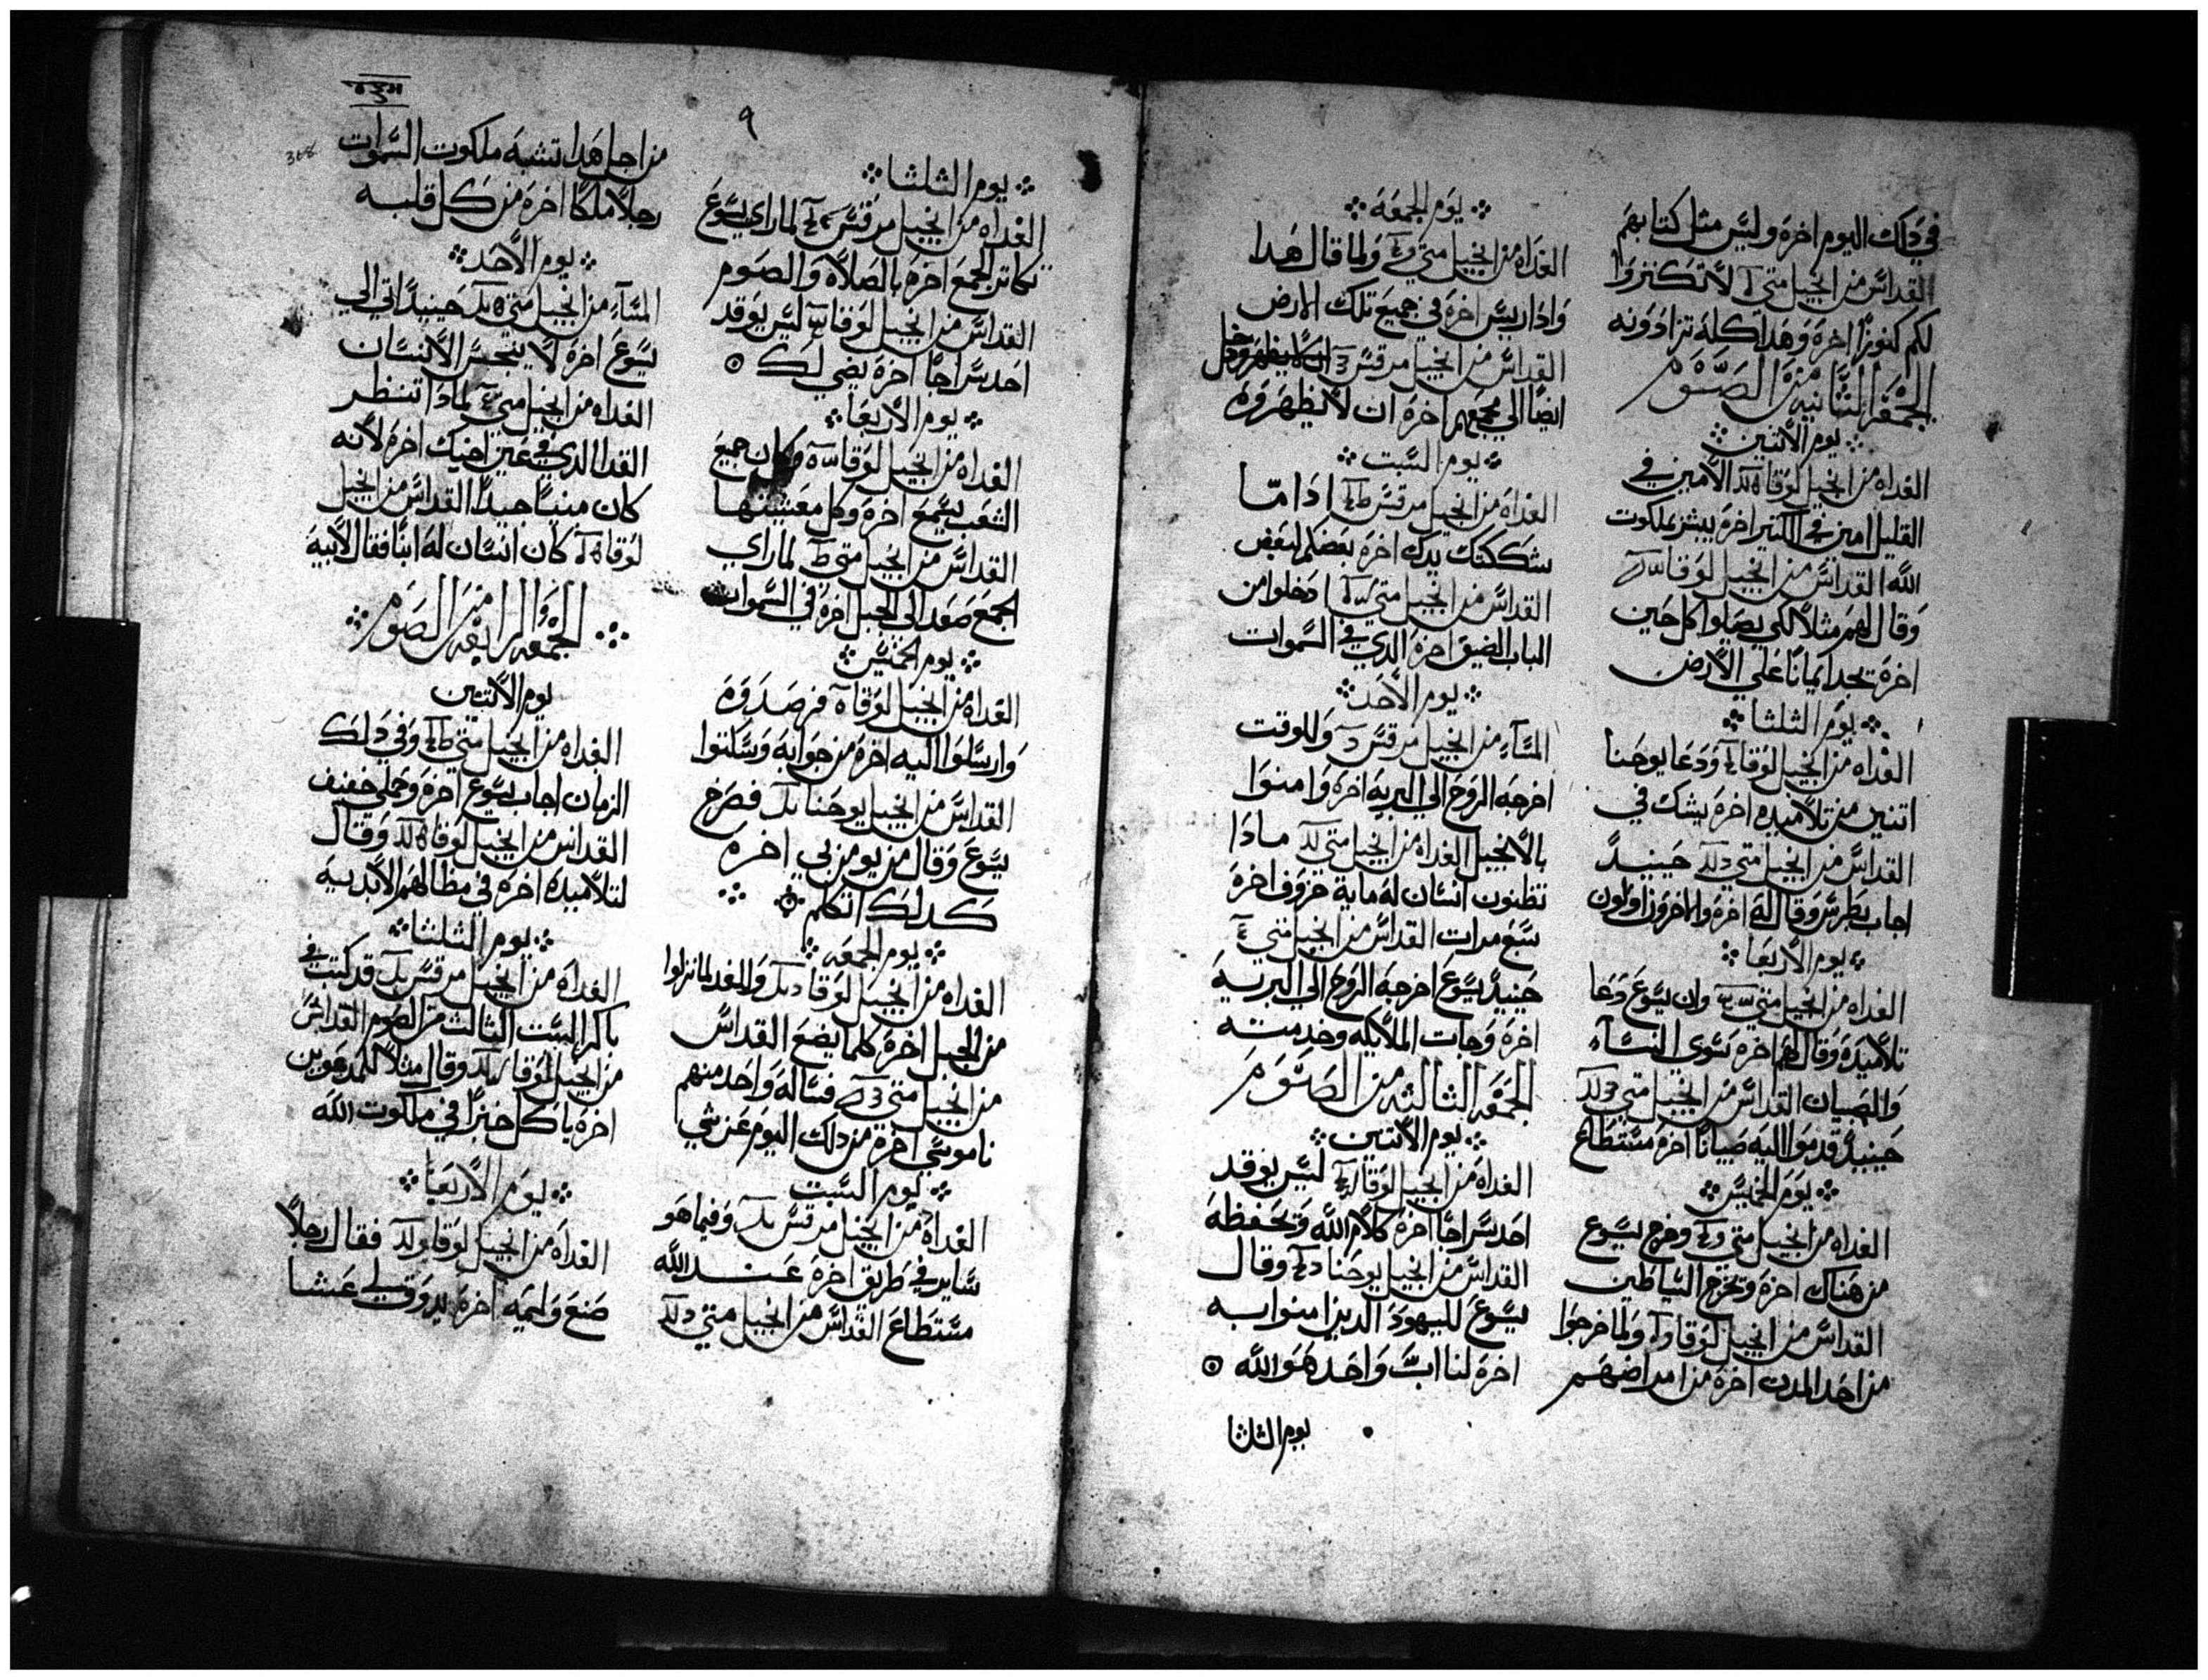 في ذلك اليوم اخره وليس مثل كتابهم
القداس من انجيل متي لا تكنزوا
لكم كنوزا اخره وهدا كله تزادونه
الجمعة الثانيه من الصوم
يوم الاتنين
الغداه من انجيل لوقا الامين في
القليل امين في الكتير اخره يبشر بملكوت
الله القداس من انجيل لوقا
وقال لهم مثلا لكي يصلوا كل حين
اخره تجد ايمانا علي الارض
يوم الثلثا
الغداه من انجيل لوقا ودعا يوحنا
اتنين من تلاميده اخره يشك في
القداس من انجيل متي حينيدً
اجاب بطرس وقال له اخره والاخرون اولون
يوم الاربعا
الغداه من انجيل متي وان يسوع دعا
تلاميده وقال لهم اخره سوي النسآء
والصبيان القداس من انجيل متي
حينيد قدموا اليه صبيانا اخره مستطاع
يوم الخميس
الغداه من انجيل متي وخرج يسوع
من هناك اخره وتخرج الشياطين
القداس من انجيل لوقا ولما خرجوا
من احد المدن اخره من امراضهم
يوم الجمعة
الغداه من انجيل متي ولما قال هدا
وادا ريس اخره في جميع تلك الارض
القداس من انجيل مرقس ودخل
ايضا الي مجمعهم اخره ان لا يظهروه
يوم السبت
الغداه من انجيل مرقس ادا ما
شككتك يدك اخره بعضكم لبعض
القداس من انجيل متي ادخلوا من
الباب الضيق اخره الدي في السموات
يوم الاحد
المسآء من انجيل مرقس وللوقت
اخرجه الروح الي البريه اخره وامنوا
بالانجيل الغداه من انجيل متي مادا
تظنون انسان له ماية خروف اخره
سبع مرات القداس من انجيل متي
حينيدً يسوع اخرجه الروح الي البريه
اخره وجات الملايكه وخدمته
الجمعه الثالثه من الصوم
يوم الاتنين
الغداه من انجيل لوقا ليس يوقد
احد سراجا اخره كلام الله وتحفظه
القداس من انجيل يوحنا وقال
يسوع لليهود الدين امنوا به
اخره لنا اب واحد هو الله
يوم الثلثا
٩
يوم الثلثا
الغداه من انجيل مرقس لما راي يسوع
تكاتر الجمع اخره بالصلاه والصوم
القداس من انجيل لوقا ليس يوقد
احد سراجا اخره يضي لك
يوم الاربعا
الغداه من انجيل لوقا وكان جميع
الشعب يسمع اخره وكل معيشتها
القداس من انجيل متي لما راي
الجمع صعد الي الجبل اخره في السموات
يوم الخميس
الغداه من انجيل لوقا فرصدوه
وارسلوا اليه اخره من جوابه وسكتوا
القداس من انجيل يوحنا فصرخ
يسوع وقال من يومن بي اخره
كدلك اتكلم
يوم الجمعه
الغداه من انجيل لوقا والغد لما نزلوا
من الجبل اخره كلما يضع القداس
من انجيل متي فساله واحد منهم
ناموسي اخره من دلك اليوم عن شي
يوم السبت
الغداه من انجيل مرقس وفيما هو
ساير في طريق اخره عند الله
مستطاع القداس من انجيل متي
368
من اجل هدا تشبه ملكوت السموات
رجلا ملكا اخره من كل قلبه
يوم الاحد
المسآء من انجيل متي حينيدا اتي الي
يسوع اخره لا ينجس الانسان
الغداه من انجيل متي لمادا تنظر
القدا الدي في عين اخيك اخره لانه
كان منبيا جيدا القداس من انجيل
لوقا كان انسان له ابنا فقال لابيه
الجمعه الرابعه من الصوم
يوم الاتنين
الغداه من انجيل متي وفي دلك
الزمان اجاب يسوع اخره وحملي خفيف
القداس من انجيل لوقا وقال
لتلاميده اخره في مظالهم الابديه
يوم الثلثا
الغداه من انجيل مرقس قد كتبت في
باكر السبت الثالث من الصوم القداس
من انجيل لوقا وقال مثلا للمدعوين
اخره ياكل خبزا في ملكوت الله
يوم الاربعا
الغداه من انجيل لوقا فقال رجلا
صنع وليمه اخره يدوق لي عشا